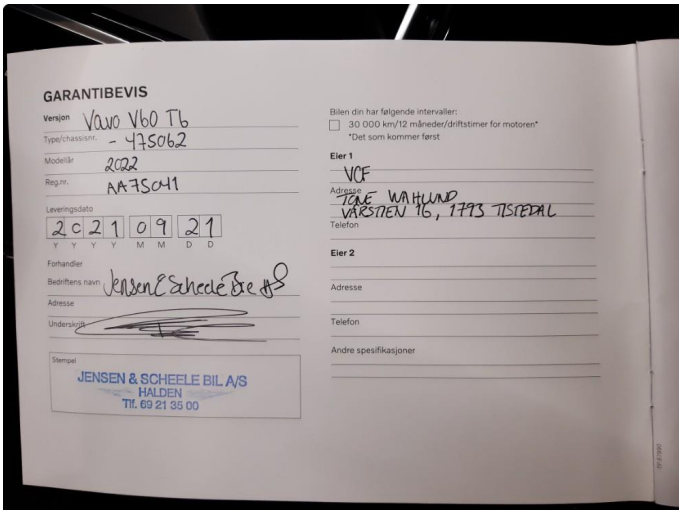 GARANTIBEVIS
Versjon Volvo V60 T6
Type/chassisnr. - 475062
Modellår 2022
Reg.nr. AA75041
Leveringsdato
2021 09 21
Y Y Y Y M M D D
Forhandler
Bedriftens navn Jensen & Scheele Bil AS
Adresse
Underskrift
Stempel
JENSEN & SCHEELE BIL A/S
HALDEN
Tlf. 69 21 35 00
Bilen din har følgende intervaller:
30 000 km/12 måneder/driftstimer for motoren*
*Det som kommer først
Eier 1
VCF
Adresse TONE WAHLUND
VARSTIEN 16, 1793 TISTEDAL
Telefon
Eier 2
Adresse
Telefon
Andre spesifikasjoner